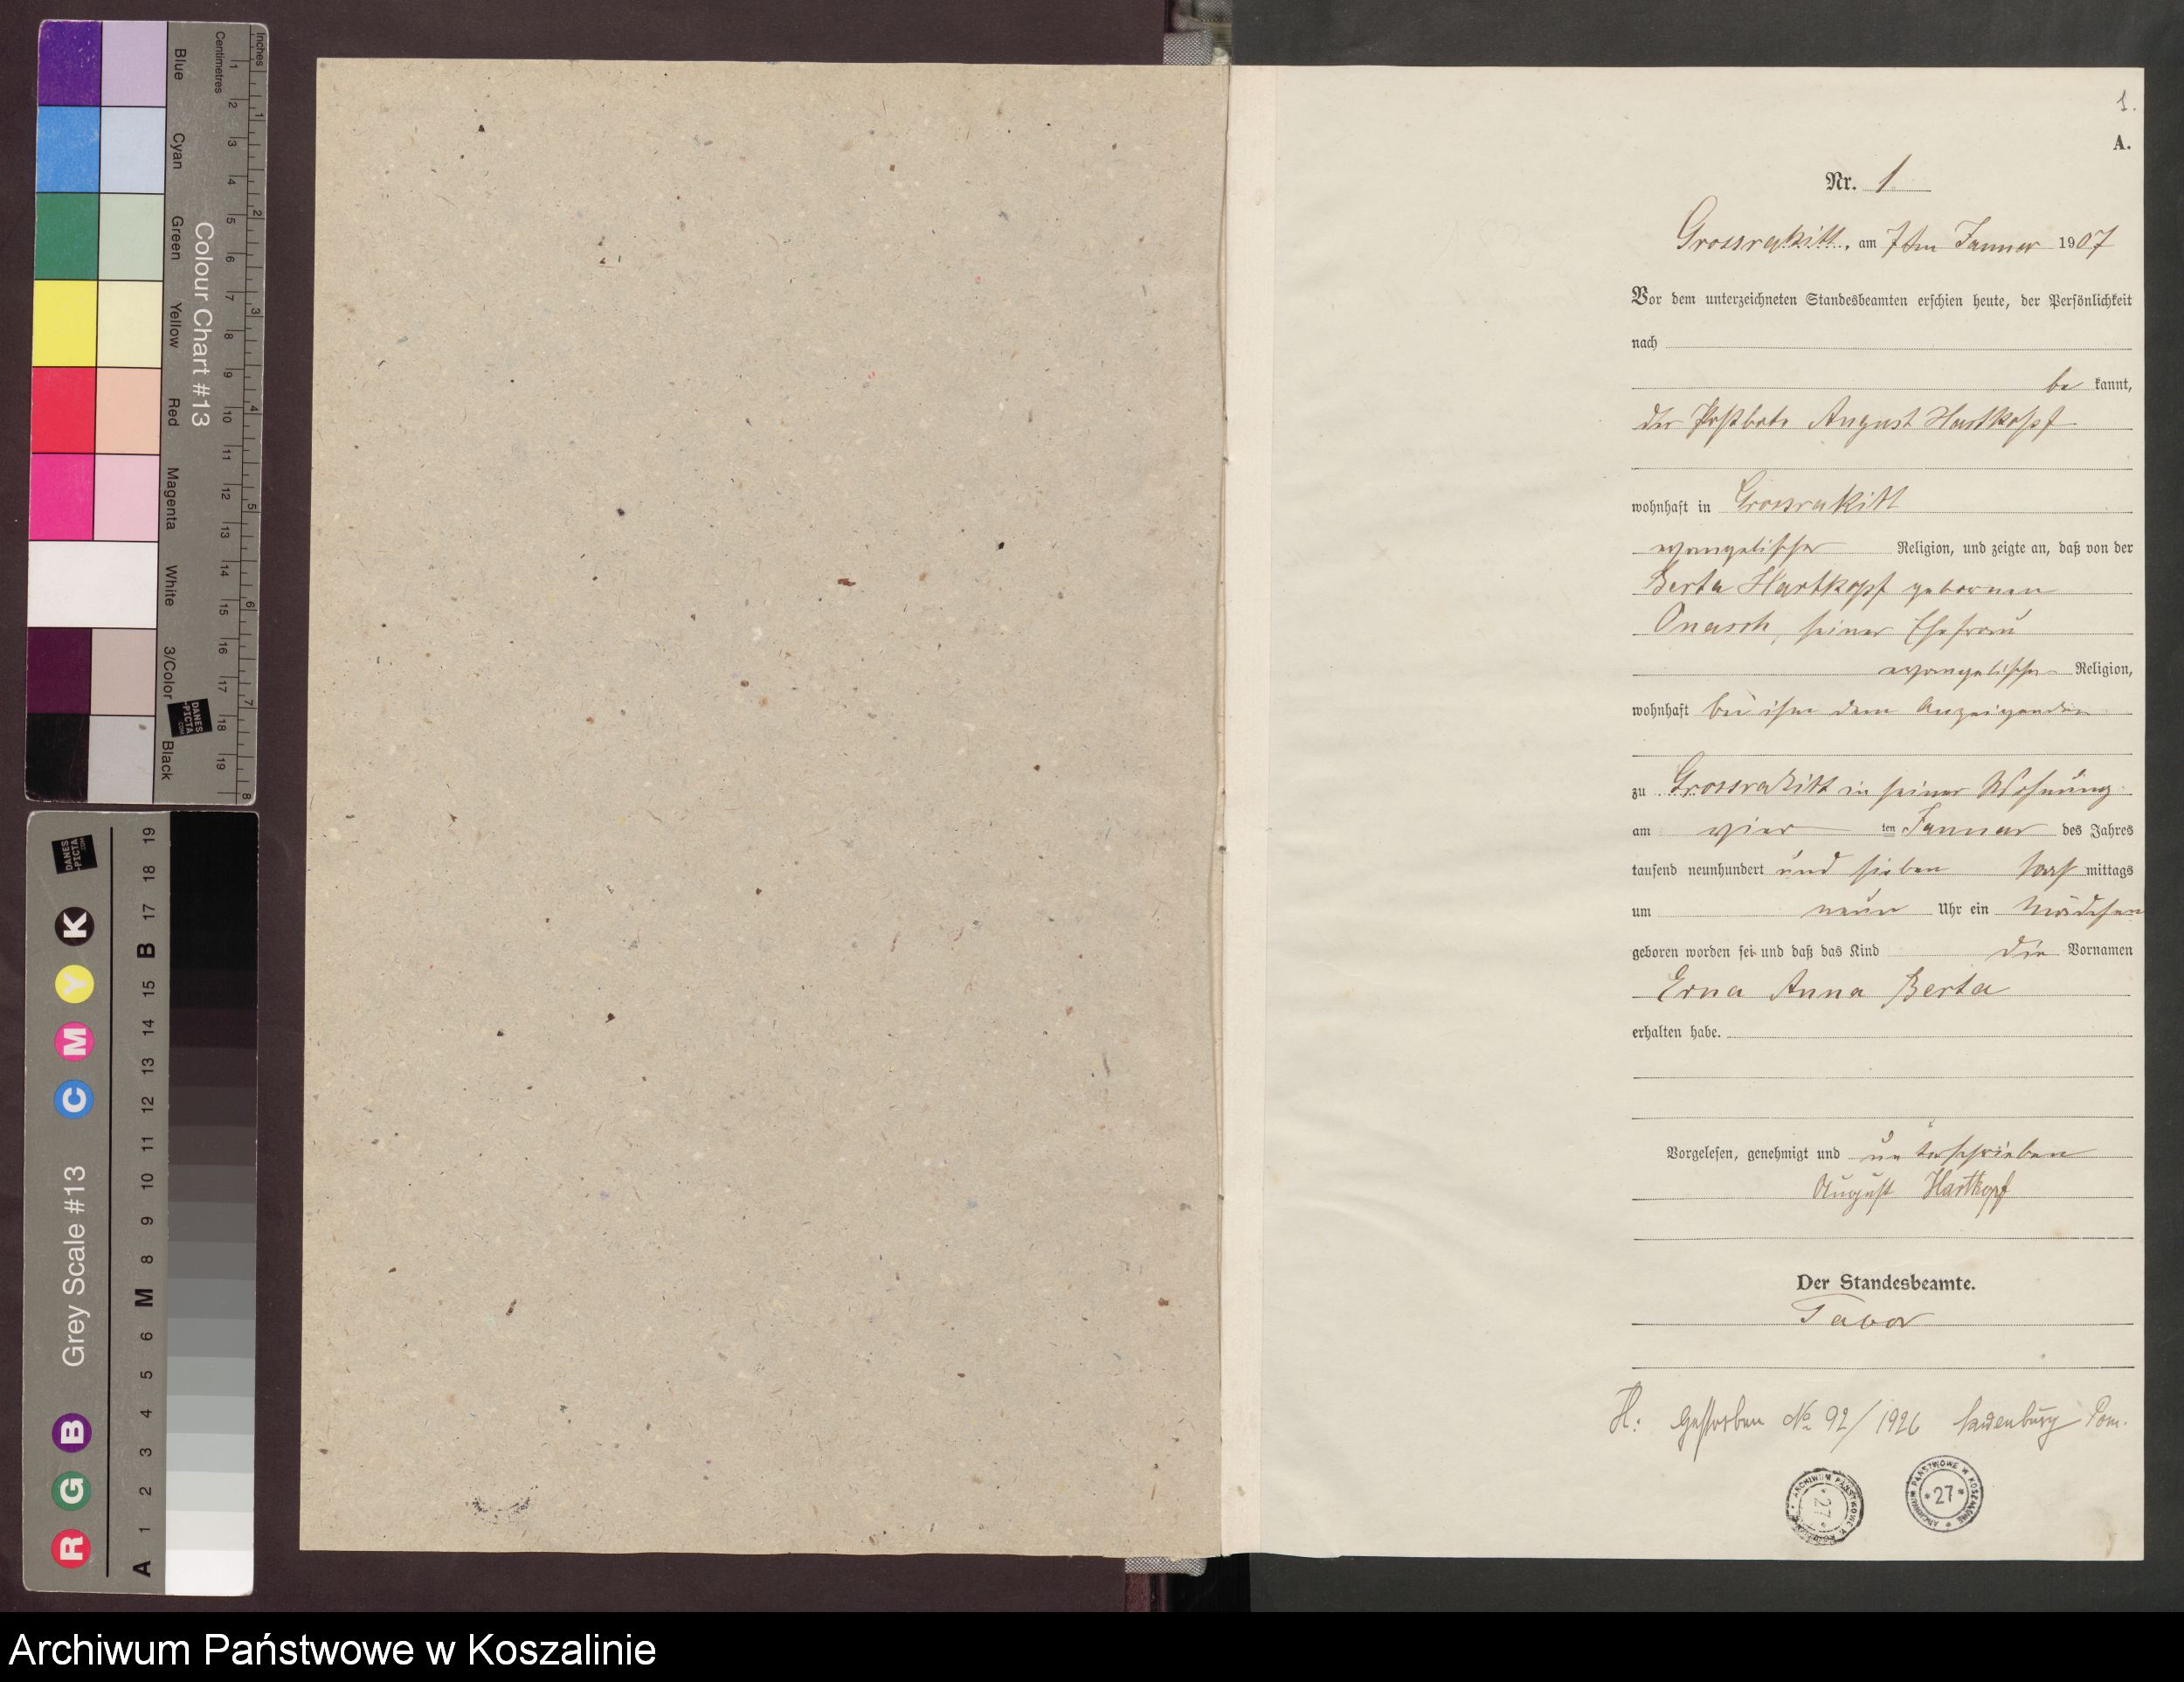 Inches
Centimetres
Colour Chart #13
Blue
Cyan
Green
Yellow
Red
Magenta
White
3/Color
Black
DANES
-PICTA
.COM
1 2 3 4 5 6 7 8 9 10 11 12 13 14 15 16 17 18 19
1 2 3 4 5 6 7 8
DANES
-PICTA
.COM
R G B Grey Scale #13 C M Y K
A 1 2 3 4 5 6 M 8 9 10 11 12 13 14 15 B 17 18 19
1.
A.
Nr. 1
Grossrakitt, am 7ten Januar 1907
Vor dem unterzeichneten Standesbeamten erschien heute, der Persönlichkeit
nach
be kannt,
der Postbote August Hartkopf
wohnhaft in Grossrakitt
evangelischer Religion, und zeigte an, daß von der
Berta Hartkopf gebornen
Onasch, seiner Ehefrau
evangelischer Religion,
wohnhaft bei ihm dem Anzeigenden
zu Grossrakitt in seiner Wohnung
am vier ten Januar des Jahres
tausend neunhundert und sieben Vor mittags
um neun Uhr ein Mädchen
geboren worden sei und daß das Kind die Vornamen
Erna Anna Berta
erhalten habe.
Vorgelesen, genehmigt und unterschrieben
August Hartkopf
Der Standesbeamte.
Tabor
H: Gestorben No 92/1926 Lauenburg Pom.
ARCHIWUM PAŃSTWOWE W KOSZALINIE
* 27 *
ARCHIWUM PAŃSTWOWE W KOSZALINIE
* 27 *
Archiwum Państwowe w Koszalinie